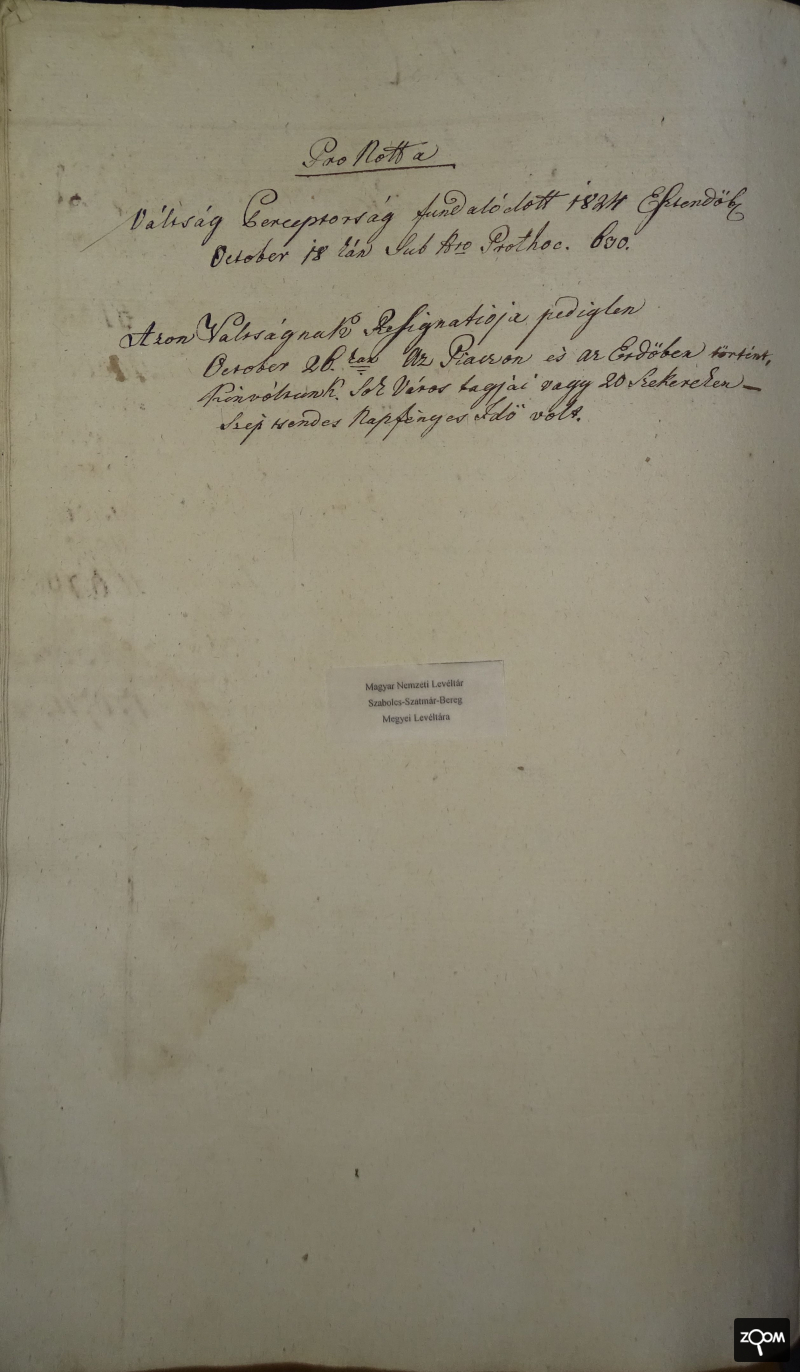 Pro Notta
Váltság Perceptorság fundalódott 1824 Esztendőb
October 18 kán Sub Nro Prothoc. 630.
Azon Váltságnak Resignatiója pediglen
October 26. kan Az Piaczon és az Erdőben történt,
Künvóltunk. Sok Város tagjai vagy 20 Szekereken –
Szép tsendes Napfényes Idő volt.
Magyar Nemzeti Levéltár
Szabolcs-Szatmár-Bereg
Megyei Levéltára
ZOOM